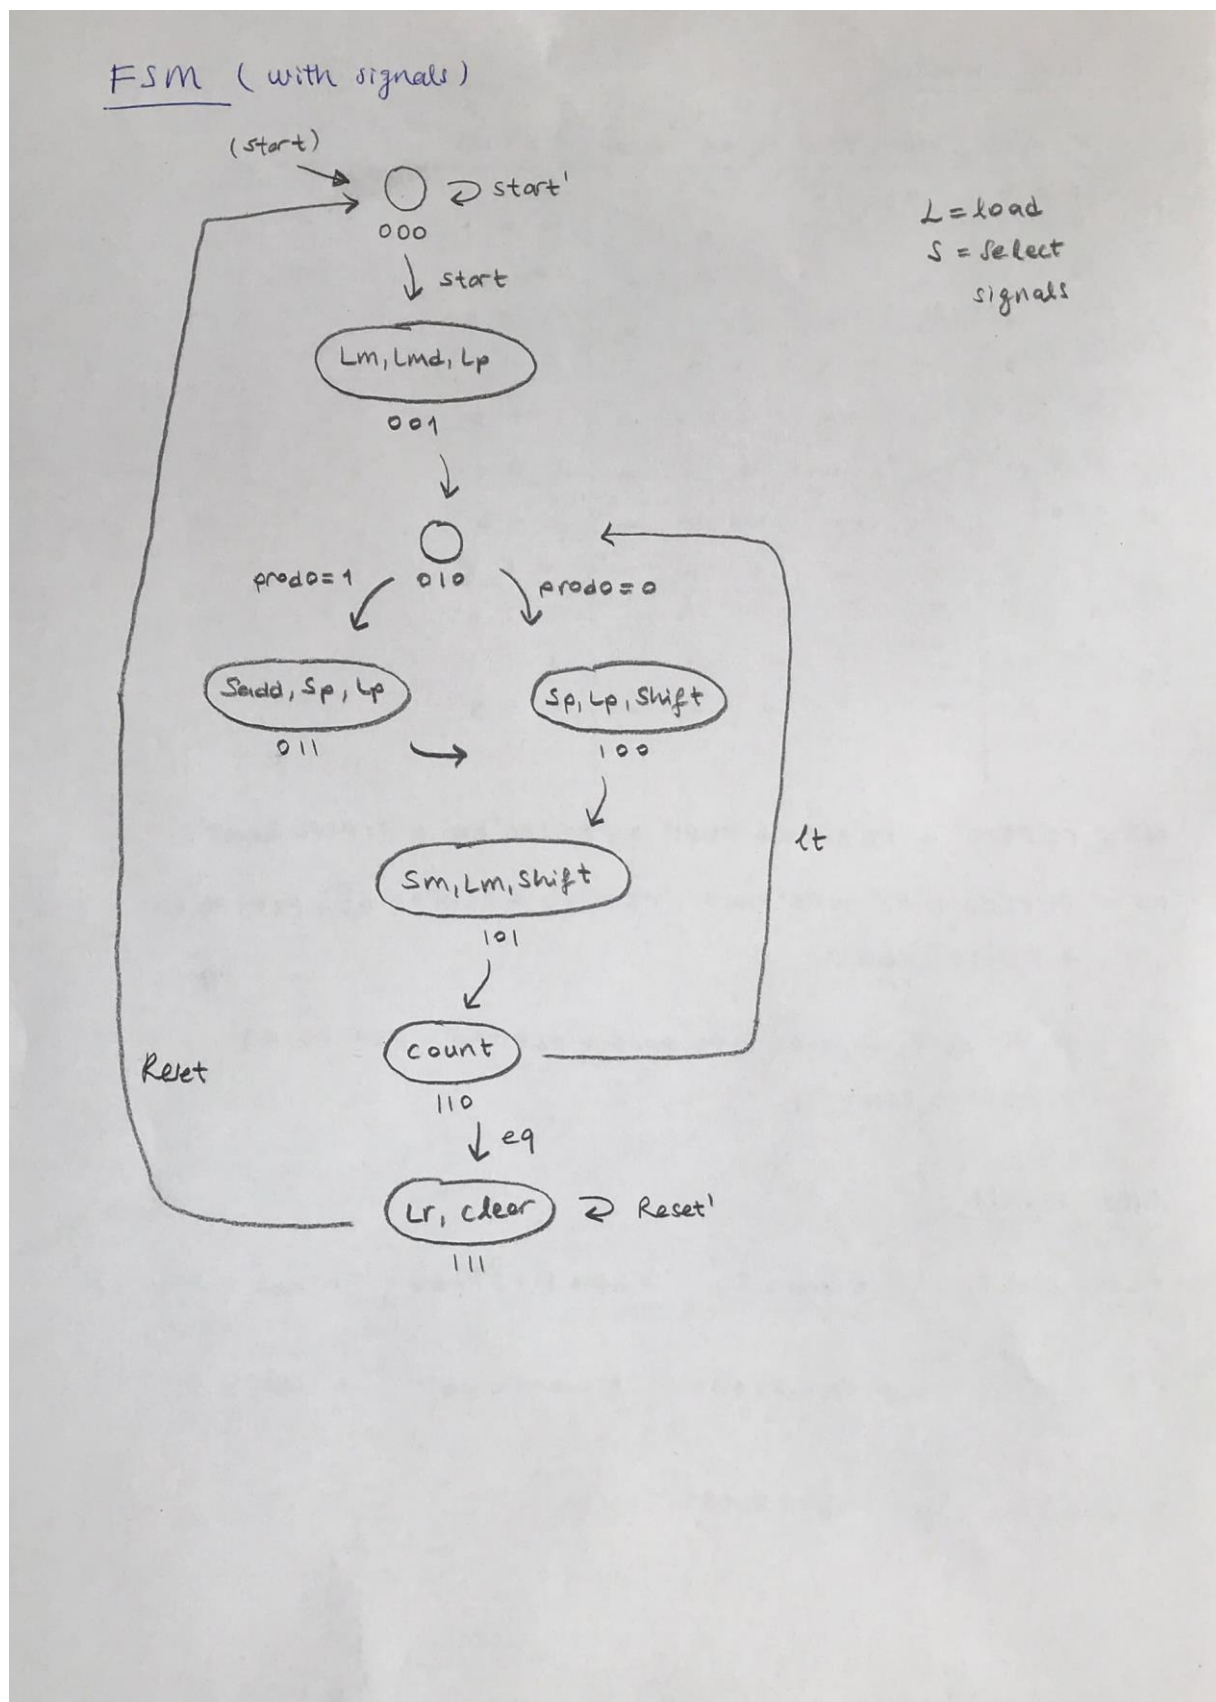 FSM (with signals)
(start)
start'
000
L = load
S = select
signals
start
Lm, Lmd, Lp
001
prod0 = 1
010
prod0 = 0
Sadd, Sp, Lp
011
Sp, Lp, Shift
100
lt
Sm, Lm, Shift
101
count
110
Reset
eq
Lr, clear
Reset'
111